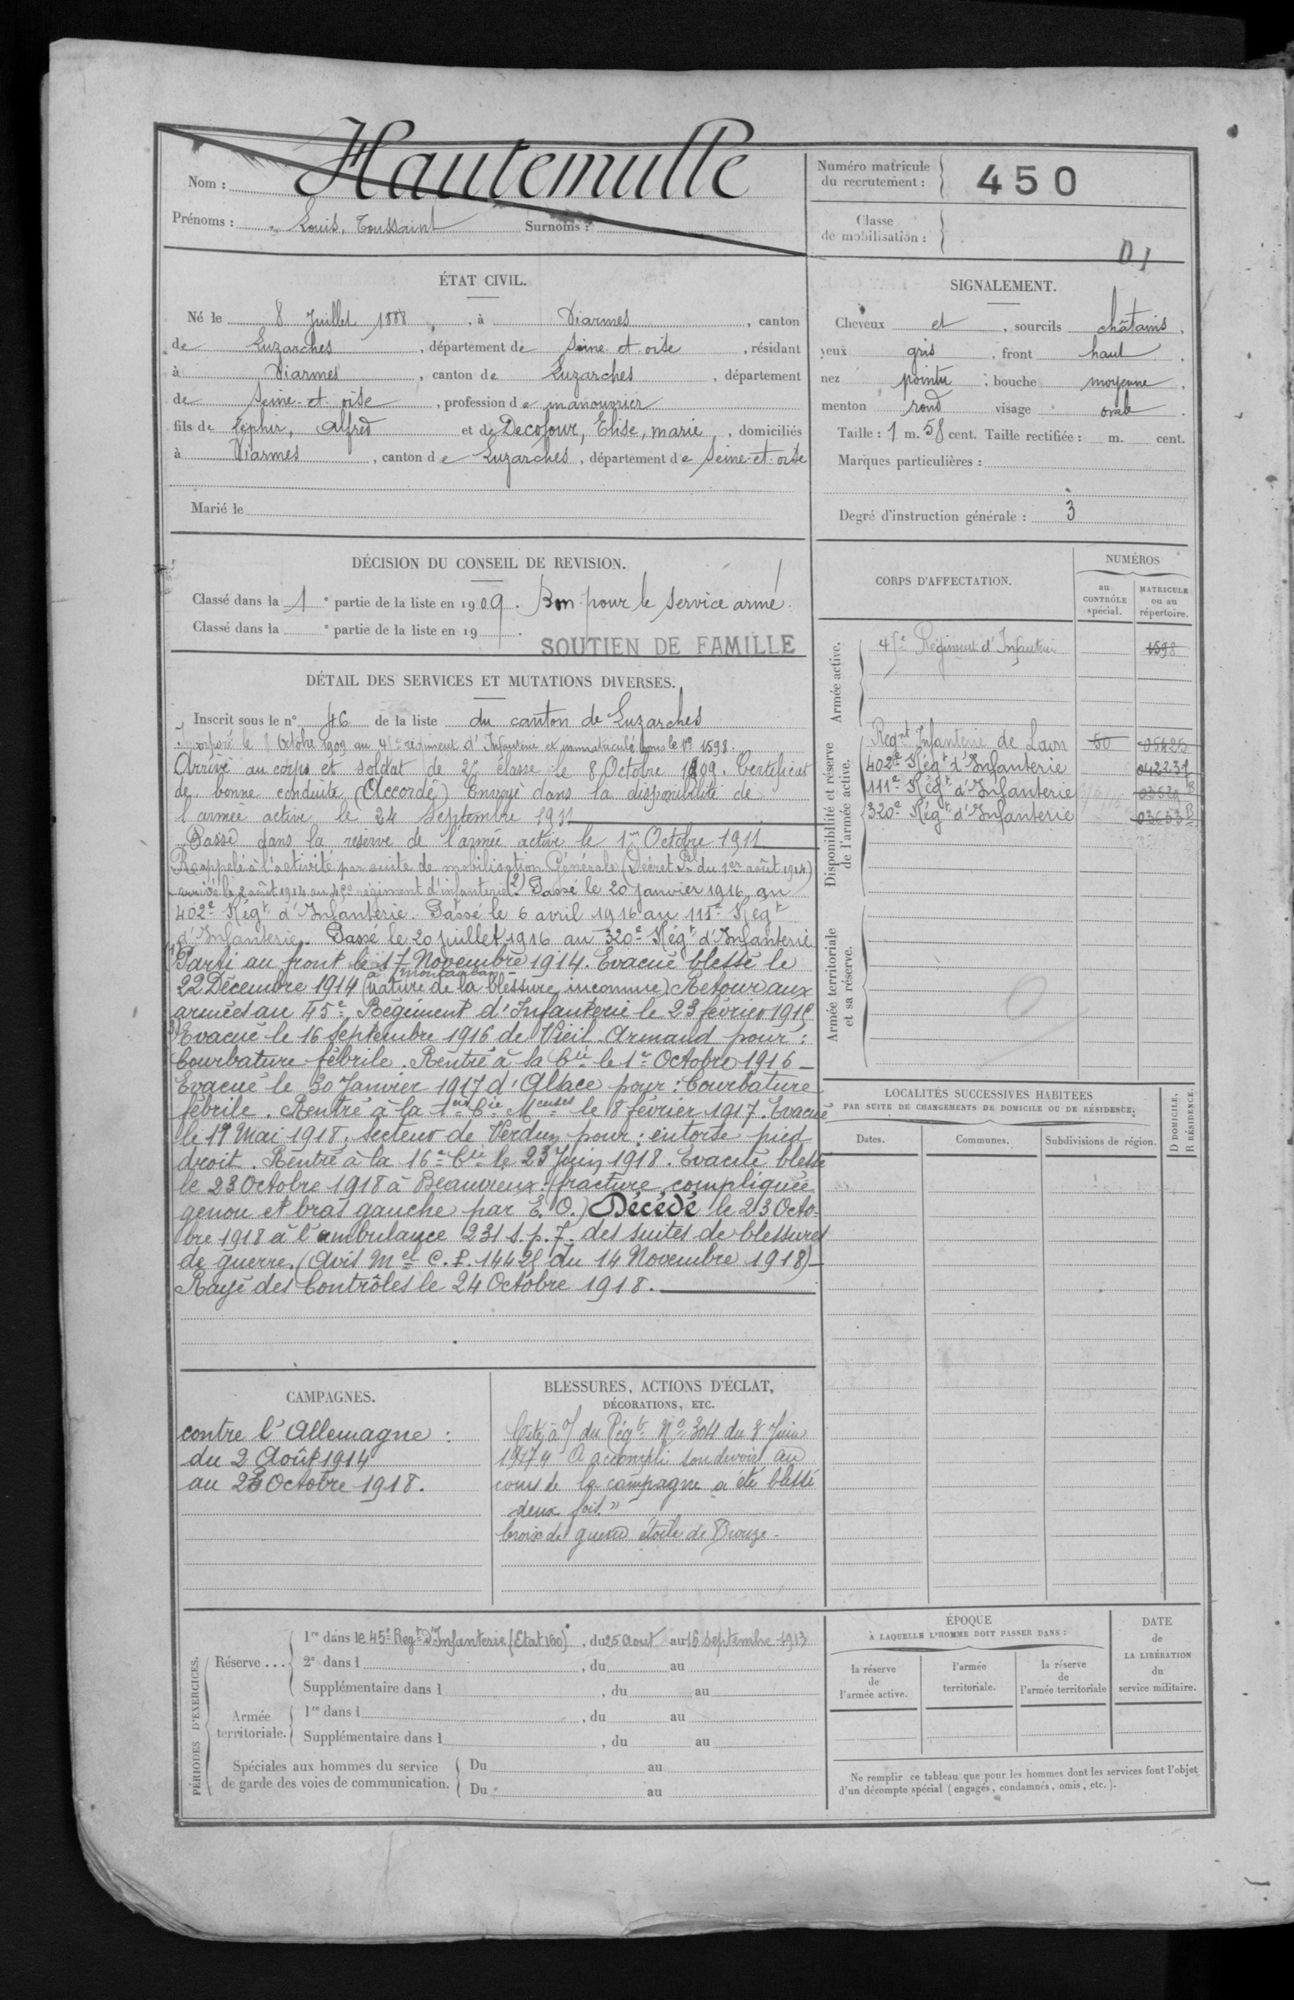 Nom : Hautemulle
Prénoms : Louis, Toussaint Surnoms :
Numéro matricule
du recrutement : 450
Classe
de mobilisation :
D1
ÉTAT CIVIL.
Né le 8 Juillet 1888, à Viarmes, canton
de Luzarches, département de Seine-et-oise, résidant
à Viarmes, canton de Luzarches, département
de Seine-et-oise, profession de manouvrier
fils de Zéphir, Alfred et de Decofour, Elise, marie, domiciliés
à Viarmes, canton de Luzarches, département de Seine-et-oise
Marié le
SIGNALEMENT.
Cheveux et, sourcils châtains,
yeux gris, front haut,
nez pointu; bouche moyenne,
menton rond visage ovale.
Taille : 1 m. 58 cent. Taille rectifiée : m. cent.
Marques particulières :
Degré d'instruction générale : 3
DÉCISION DU CONSEIL DE REVISION.
Classé dans la 1e partie de la liste en 1909. Bon pour le service armé.
Classé dans la e partie de la liste en 19 .
SOUTIEN DE FAMILLE
DÉTAIL DES SERVICES ET MUTATIONS DIVERSES.
Inscrit sous le n° 46 de la liste du canton de Luzarches
Incorporé le 8 Octobre 1909 au 45e régiment d'Infanterie et immatriculé sous le No 1598.
Arrivé au corps et soldat de 2e classe le 8 Octobre 1909. Certificat
de bonne conduite (Accordé) Envoyé dans la disponibilité de
l'armée active le 24 Septembre 1911
Passé dans la réserve de l'armée active le 1er Octobre 1911
Rappelé à l'activité par suite de mobilisation Générale (Décret Pel du 1er août 1914)
arrivé le 2 août 1914 au 45e régiment d'infanterie (2) Passé le 20 janvier 1916 au
402e Régt d'Infanterie. Passé le 6 avril 1916 au 115e Régt
d'Infanterie. Passé le 20 juillet 1916 au 320e Régt d'Infanterie
(1) Parti au front le 17 Novembre 1914. Evacué blessé le
22 Décembre 1914 (nature de la blessure inconnue) Retour aux
armées au 45e Régiment d'Infanterie le 23 février 1915
(3) Evacué le 16 septembre 1916 de Vieil-Armand pour :
Courbature fébrile. Rentré à sa Cie le 1er Octobre 1916 –
Evacué le 30 Janvier 1917 d'Alsace pour : Courbature
fébrile. Rentré à la 1ere Cie Meuses le 8 février 1917. Evacué
le 17 Mai 1918, secteur de Verdun pour : entorse pied
droit. Rentré à la 16e Cie le 23 Juin 1918. Evacué blessé
le 23 Octobre 1918 à Beaurieux : (fracture compliquée
genou et bras gauche par E. O.) Décédé le 23 Octo-
bre 1918 à l'ambulance 231 s.p. 7. des suites de blessures
de guerre. (Avis Mel C.P. 14425 du 14 Novembre 1918) –
Rayé des Contrôles le 24 Octobre 1918.
CORPS D'AFFECTATION.
NUMÉROS
au
CONTRÔLE
spécial.
MATRICULE
ou au
répertoire.
Armée active.
45e Régiment d'Infanterie 1598
Disponibilité et réserve
de l'armée active.
Regnt Infanterie de Laon 50 05425
402e Régt d'Infanterie 042237
111e Régt d'Infanterie
320e Régt d'Infanterie
Armée territoriale
et sa réserve.
LOCALITÉS SUCCESSIVES HABITÉES
PAR SUITE DE CHANGEMENTS DE DOMICILE OU DE RÉSIDENCE.
Dates. Communes. Subdivisions de région.
D DOMICILE,
R RÉSIDENCE.
CAMPAGNES.
contre l'Allemagne :
du 2 Août 1914
au 23 Octobre 1918.
BLESSURES, ACTIONS D'ÉCLAT,
DÉCORATIONS, ETC.
Cité à l'O du Régt No 304 du 8 Juin
1917 " A accompli son devoir au
cours de la campagne a été blessé
deux fois."
Croix de guerre étoile de Bronze.
PÉRIODES D'EXERCICES.
Réserve ...
1re dans le 45e Regt d'Infanterie (Etat 160), du 25 aout au 16 septembre 1913
2e dans l , du au
Supplémentaire dans l , du au
Armée
territoriale.
1re dans l , du au
Supplémentaire dans l , du au
Spéciales aux hommes du service
de garde des voies de communication.
Du au
Du au
ÉPOQUE
À LAQUELLE L'HOMME DOIT PASSER DANS :
la réserve
de
l'armée active.
l'armée
territoriale.
la réserve
de
l'armée territoriale
DATE
de
LA LIBÉRATION
du
service militaire.
Ne remplir ce tableau que pour les hommes dont les services font l'objet
d'un décompte spécial (engagés, condamnés, omis, etc.).